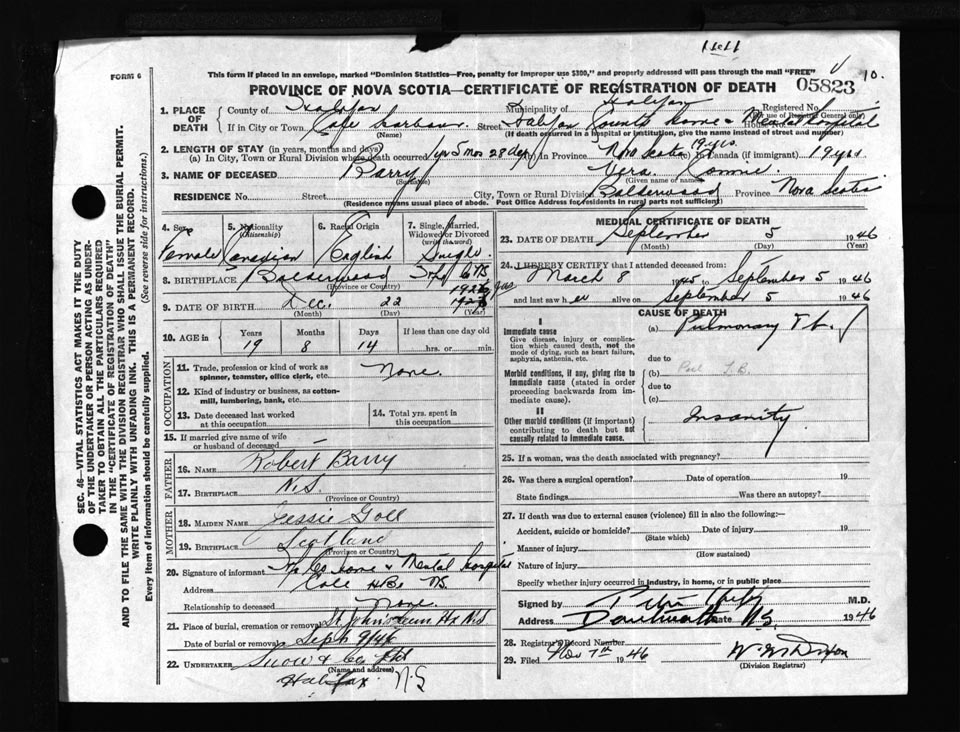 FORM 6
This form if placed in an envelope, marked "Dominion Statistics—Free, penalty for improper use $300," and properly addressed will pass through the mail "FREE"
10.
PROVINCE OF NOVA SCOTIA—CERTIFICATE OF REGISTRATION OF DEATH
05823
1. PLACE OF DEATH
County of Halifax Municipality of Halifax Registered No.
(For use of Registrar General only)
If in City or Town Cole Harbour Street Halifax County Home & Mental Hospital
(Name) (If death occurred in a hospital or institution, give the name instead of street and number)
2. LENGTH OF STAY (in years, months and days)
(a) In City, Town or Rural Division where death occurred 1 yr 5 mos 28 days (b) In Province Nova Scotia 19 yrs. (c) In Canada (if immigrant) 19 yrs
3. NAME OF DECEASED Barry Vera
(Surname) (Given name or names)
RESIDENCE No. Street City, Town or Rural Division Province Nova Scotia
(Residence means usual place of abode. Post Office Address for residents in rural parts not sufficient)
4. Sex
Female
5. Nationality
(Citizenship)
Canadian
6. Racial Origin
English
7. Single, Married, Widowed or Divorced
(write the word)
Single
8. BIRTHPLACE
(Province or Country)
9. DATE OF BIRTH Dec. 22
(Month) (Day) (Year)
10. AGE in
Years Months Days If less than one day old
19 8 14 hrs. or min.
OCCUPATION
11. Trade, profession or kind of work as spinner, teamster, office clerk, etc. None.
12. Kind of industry or business, as cotton-mill, lumbering, bank, etc.
13. Date deceased last worked at this occupation
14. Total yrs. spent in this occupation
15. If married give name of wife or husband of deceased —
FATHER
16. NAME Robert Barry
17. BIRTHPLACE N.S.
(Province or Country)
MOTHER
18. MAIDEN NAME Jessie
19. BIRTHPLACE Scotland
(Province or Country)
20. Signature of informant Hx Co Home & Mental Hospital
Address Cole Hbr NS.
Relationship to deceased None.
21. Place of burial, cremation or removal St Johns Cem Hx NS
Date of burial or removal Sept 9/46
22. UNDERTAKER Snow & Co Ltd
(Name and address)
Halifax N-S
MEDICAL CERTIFICATE OF DEATH
23. DATE OF DEATH September 5 1946
(Month) (Day) (Year)
24. I HEREBY CERTIFY that I attended deceased from:
March 8 1945 to September 5 1946
and last saw her alive on September 5 1946
CAUSE OF DEATH
I
Immediate cause
Give disease, injury or complication which caused death, not the mode of dying, such as heart failure, asphyxia, asthenia, etc.
(a) Pulmonary T b.
due to
Morbid conditions, if any, giving rise to immediate cause (stated in order proceeding backwards from immediate cause).
(b)
due to
(c)
II
Other morbid conditions (if important) contributing to death but not causally related to immediate cause.
Insanity.
25. If a woman, was the death associated with pregnancy?
26. Was there a surgical operation? Date of operation 19
State findings Was there an autopsy?
27. If death was due to external causes (violence) fill in also the following:—
Accident, suicide or homicide? Date of injury 19
(State which)
Manner of injury
(How sustained)
Nature of injury
Specify whether injury occurred in industry, in home, or in public place
Signed by M.D.
Address Dartmouth N.S. Date 1946
28. Registrar's Record Number
29. Filed Nov 7th 1946
(Division Registrar)
SEC. 46—VITAL STATISTICS ACT MAKES IT THE DUTY
OF THE UNDERTAKER OR PERSON ACTING AS UNDER-
TAKER TO OBTAIN ALL THE PARTICULARS REQUIRED
IN THE "CERTIFICATE OF REGISTRATION OF DEATH"
AND TO FILE THE SAME WITH THE DIVISION REGISTRAR WHO SHALL ISSUE THE BURIAL PERMIT.
WRITE PLAINLY WITH UNFADING INK. THIS IS A PERMANENT RECORD.
Every item of information should be carefully supplied. (See reverse side for instructions.)